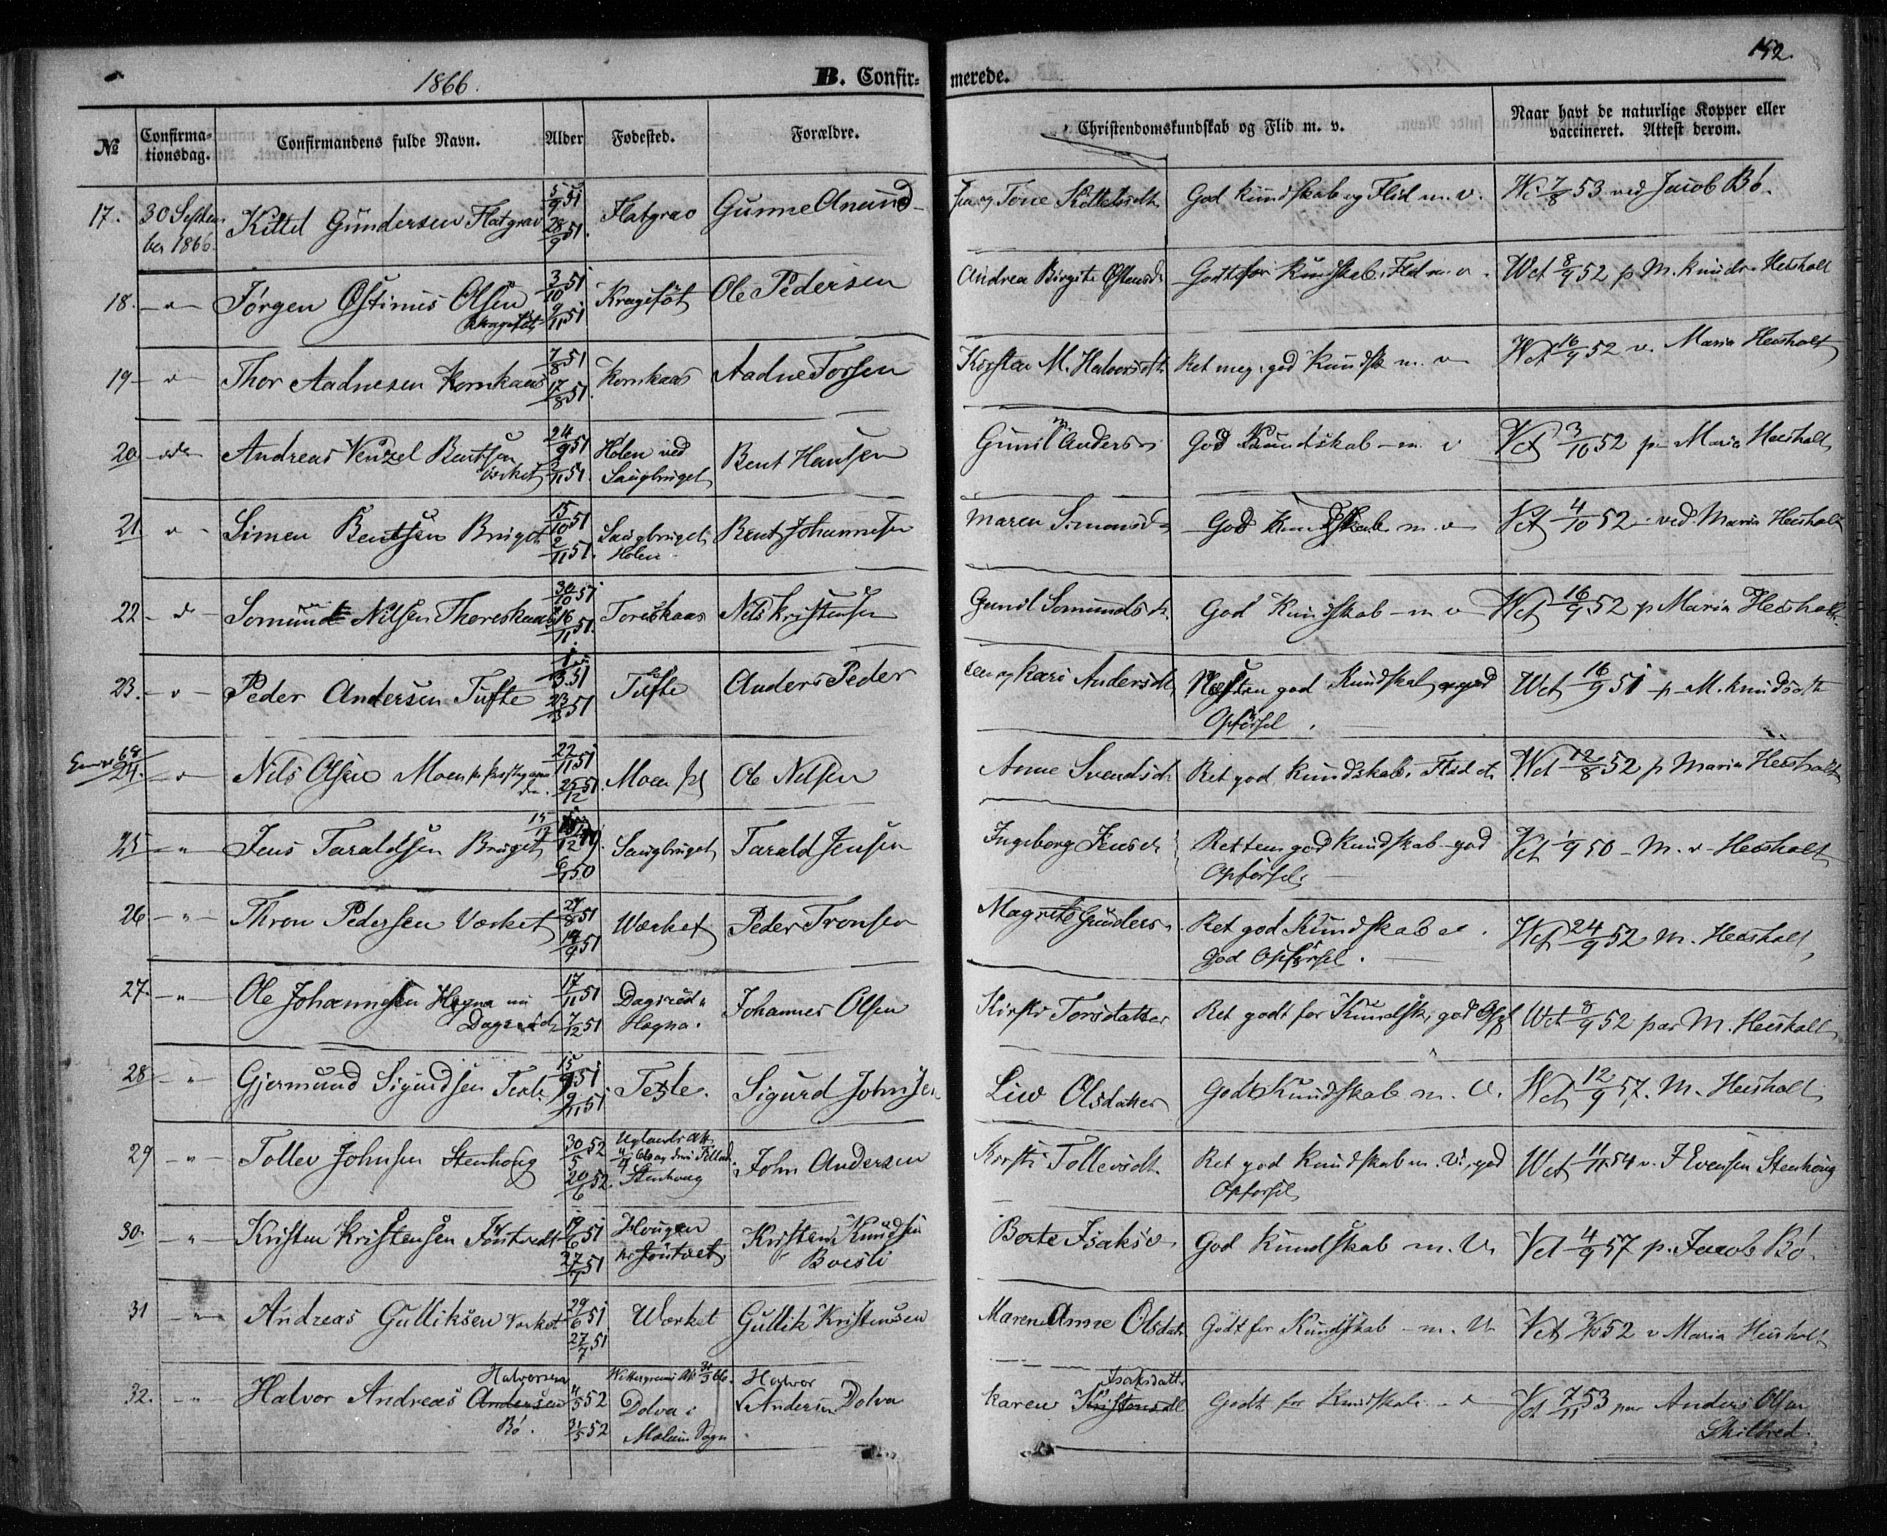 1866.
B. Confir-
merede.
152.
№
Confirma-
tionsdag.
Confirmandens fulde Navn.
Alder
Fødested.
Forældre.
Christendomskundskab og Flid m. v.
Naar havt de naturlige Kopper eller
vaccineret. Attest derom.
17. 30 Septem
ber 1866. Kittel Gundersen Flatgrav 5/9 51 28/9 51. Flatgrav Gunne Anund- Tone Kittelsdt. God Kundskab og Flid m. v. Vc. 7/8 53 ved Jacob Bø.
18. -"- Jørgen Østinius Olsen 3/10 51 9/11 51 Krageföt Ole Pedersen Andrea Birgite Østensd. Godt for Kundskab, Flid m. v. Vct 8/9 52 p M. Knuds. Heisholt
19 - " - Thor Aadnesen Kornkaas 7/8 51 17/8 51. Kornkaas Aadne Torsen Kirsten M. Halvorsdt. Ret meg. god Kundsk m. v Vct 16/9 52 v. Maria Heisholt
20 Andreas Venzel Bentsen
Værket 24/9 51 3/11 51. Holen ved
Saugbruget Bent Hansen Gunil Anders God Kundskab - m. v Vct 3/10 52 p Maria Heisholt
21 " - Simen Bentsen Bruget 15/10 51 2/11 51. Saugbruget
Holen - Bent Johannesen Maren Simonsd God Kundskab m. v Vct 4/10 52 - ved Maria Heisholt
22 - " - Somund Nilsen Thoreskaas 30/10 51 16/11 51. Toreskaas Nils Kristensen Gunil Somundsdt. God Kundskab - m v Vct 16/9 52 p Maria Heisholt
23. - " - Peder Andersen Tufte 1/3 51 23/3 51 Tufte Anders Peder
sen og Kari Andersdt Næsten god Kundskab, god
Opførsel. Vct 16/9 51 p M. Knudsdtr
24. " - Nils Olsen Moen 22/11 51 25/12 51. Moen Ole Nilsen Anne Svendsdt. Ret god Kundskab, Flid et. Vct 12/8 52 p Maria Heisholt
25 - " - Jens Taraldsen Bruget 15/12 49. 6/1 50 Saugbruget Tarald Jensen Ingeborg Jensdt Rettem god Kundskab - god
Opførsel. Vct 1/9 50 - M. v Heisholt
26 - " - Thron Pedersen Værket 27/8 51 14/9 51 Værket Peder Tronsen Magrete Gunders Ret god Kundskab et.
god Opførsel. Vct 24/9 52 M. Heisholt,
27. - " - Ole Johannesen Hogna nu
Dagsrød 17/11 51 7/12 51 Dagsrød
Hogna. Johannes Olsen Kirsti Torsdatter Ret godt for Kundsk, god Opf Vct 8/9 52 par M. Heisholt
28 - " - Gjermund Sigurdsen Tesle 15/9 51 9/11 51 Tesle. Sigurd Johnsen Liv Olsdatter Godt Kundskab m. V. Vct 12/9 57. M. Heisholt
29 - " - Tollev Johnsen Stenhoug 30/5 52 20/6 52. Stenhoug John Andersen Kirsti Tollevsdt. Ret god Kundskab m. V., god
Opførsel Vct 11/11 54 v. J Evensen Stenhoug
30. - " - Kristen Kristensen Tøntvedt 19/6 51 27/7 51 Hougen
Kristen Knudsen
Boesli Berte Isaksd. God Kundskab m. V. Vct 4/9 57 p. Jacob Bø.
31 - " - Andreas Gulliksen Værket 29/6 51 27/7 51 Værket Gullik Kristensen Maren Anne Olsdatr Godt for Kundskab - m. V. Vct 2/10 52 v Maria Heisholt
32. - " - Halvor Andreas Andersen
Halvorsen
Bø. 11/5 52 31/5 52 Dolva i
Molum Sogn Halvor
Andersen Dolva Karen Kristensdt
Isaksdatt. Godt for Kundskab. - Vct 7/11 53 par Anders Olsen
Skilbred.